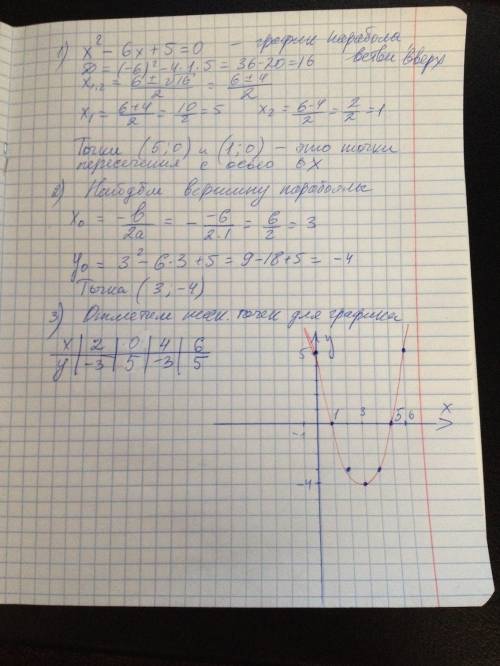 1) x² - 6x + 5 = 0 - график парабола
ветви вверх
D = (-6)² - 4·1·5 = 36 - 20 = 16
x₁,₂ = (6 ± √16)/2 = (6 ± 4)/2
x₁ = (6+4)/2 = 10/2 = 5 x₂ = (6-4)/2 = 2/2 = 1
Точки (5;0) и (1;0) - это точки
пересечения с осью OX
2) Найдём вершину параболы
x₀ = -b/2a = - -6/2·1 = 6/2 = 3
y₀ = 3² - 6·3 + 5 = 9 - 18 + 5 = -4
Точка (3; -4)
3) Отметим неск. точек для графика
x | 2 | 0 | 4 | 6
y | -3 | 5 | -3 | 5
5 y
1 3 5 6 x
-1
-4